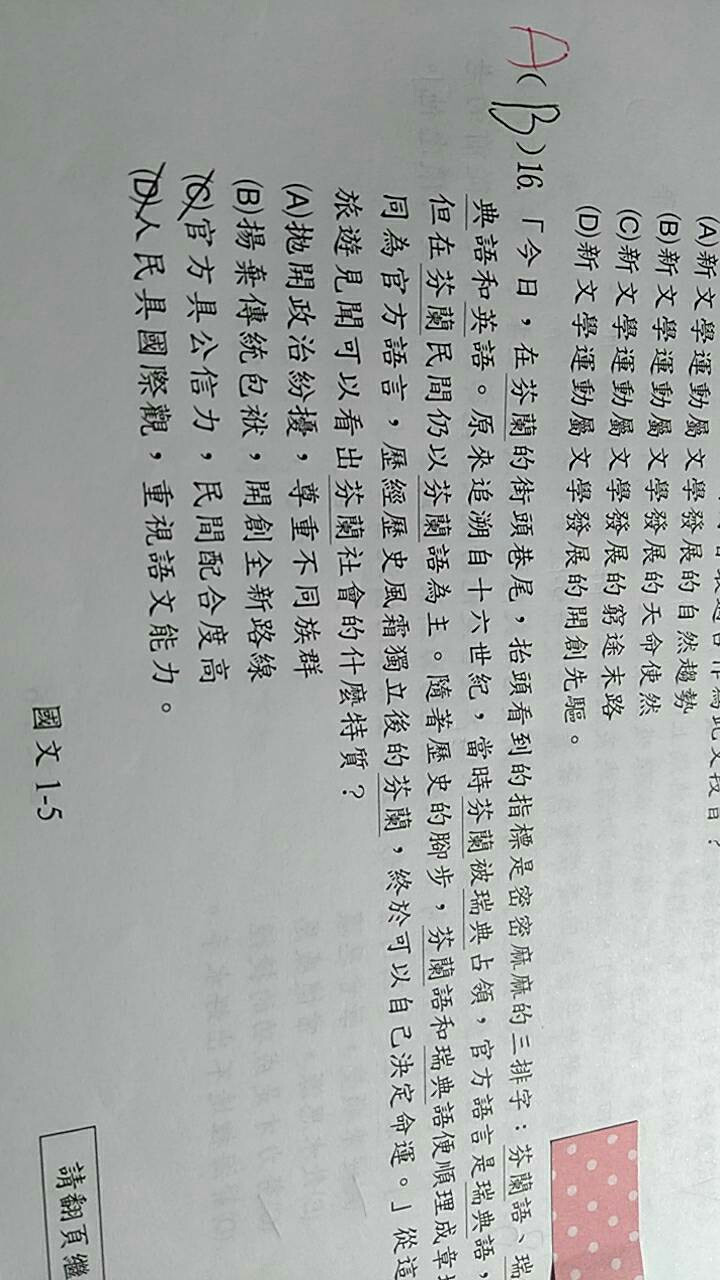 (A)新文學運動屬文學發展的自然趨勢
(B)新文學運動屬文學發展的天命使然
(C)新文學運動屬文學發展的窮途末路
(D)新文學運動屬文學發展的開創先驅。
A(B)16.「今日,在芬蘭的街頭巷尾,抬頭看到的指標是密密麻麻的三排字:芬蘭語、瑞
典語和英語。原來追溯自十六世紀,當時芬蘭被瑞典占領,官方語言是瑞典語,
但在芬蘭民間仍以芬蘭語為主。隨著歷史的腳步,芬蘭語和瑞典語便順理成章
同為官方語言,歷經歷史風霜獨立後的芬蘭,終於可以自己決定命運。」從這
旅遊見聞可以看出芬蘭社會的什麼特質?
(A)拋開政治紛擾,尊重不同族群
(B)揚棄傳統包袱,開創全新路線
(C)官方具公信力,民間配合度高
(D)人民具國際觀,重視語文能力。
國文 1-5
請翻頁繼